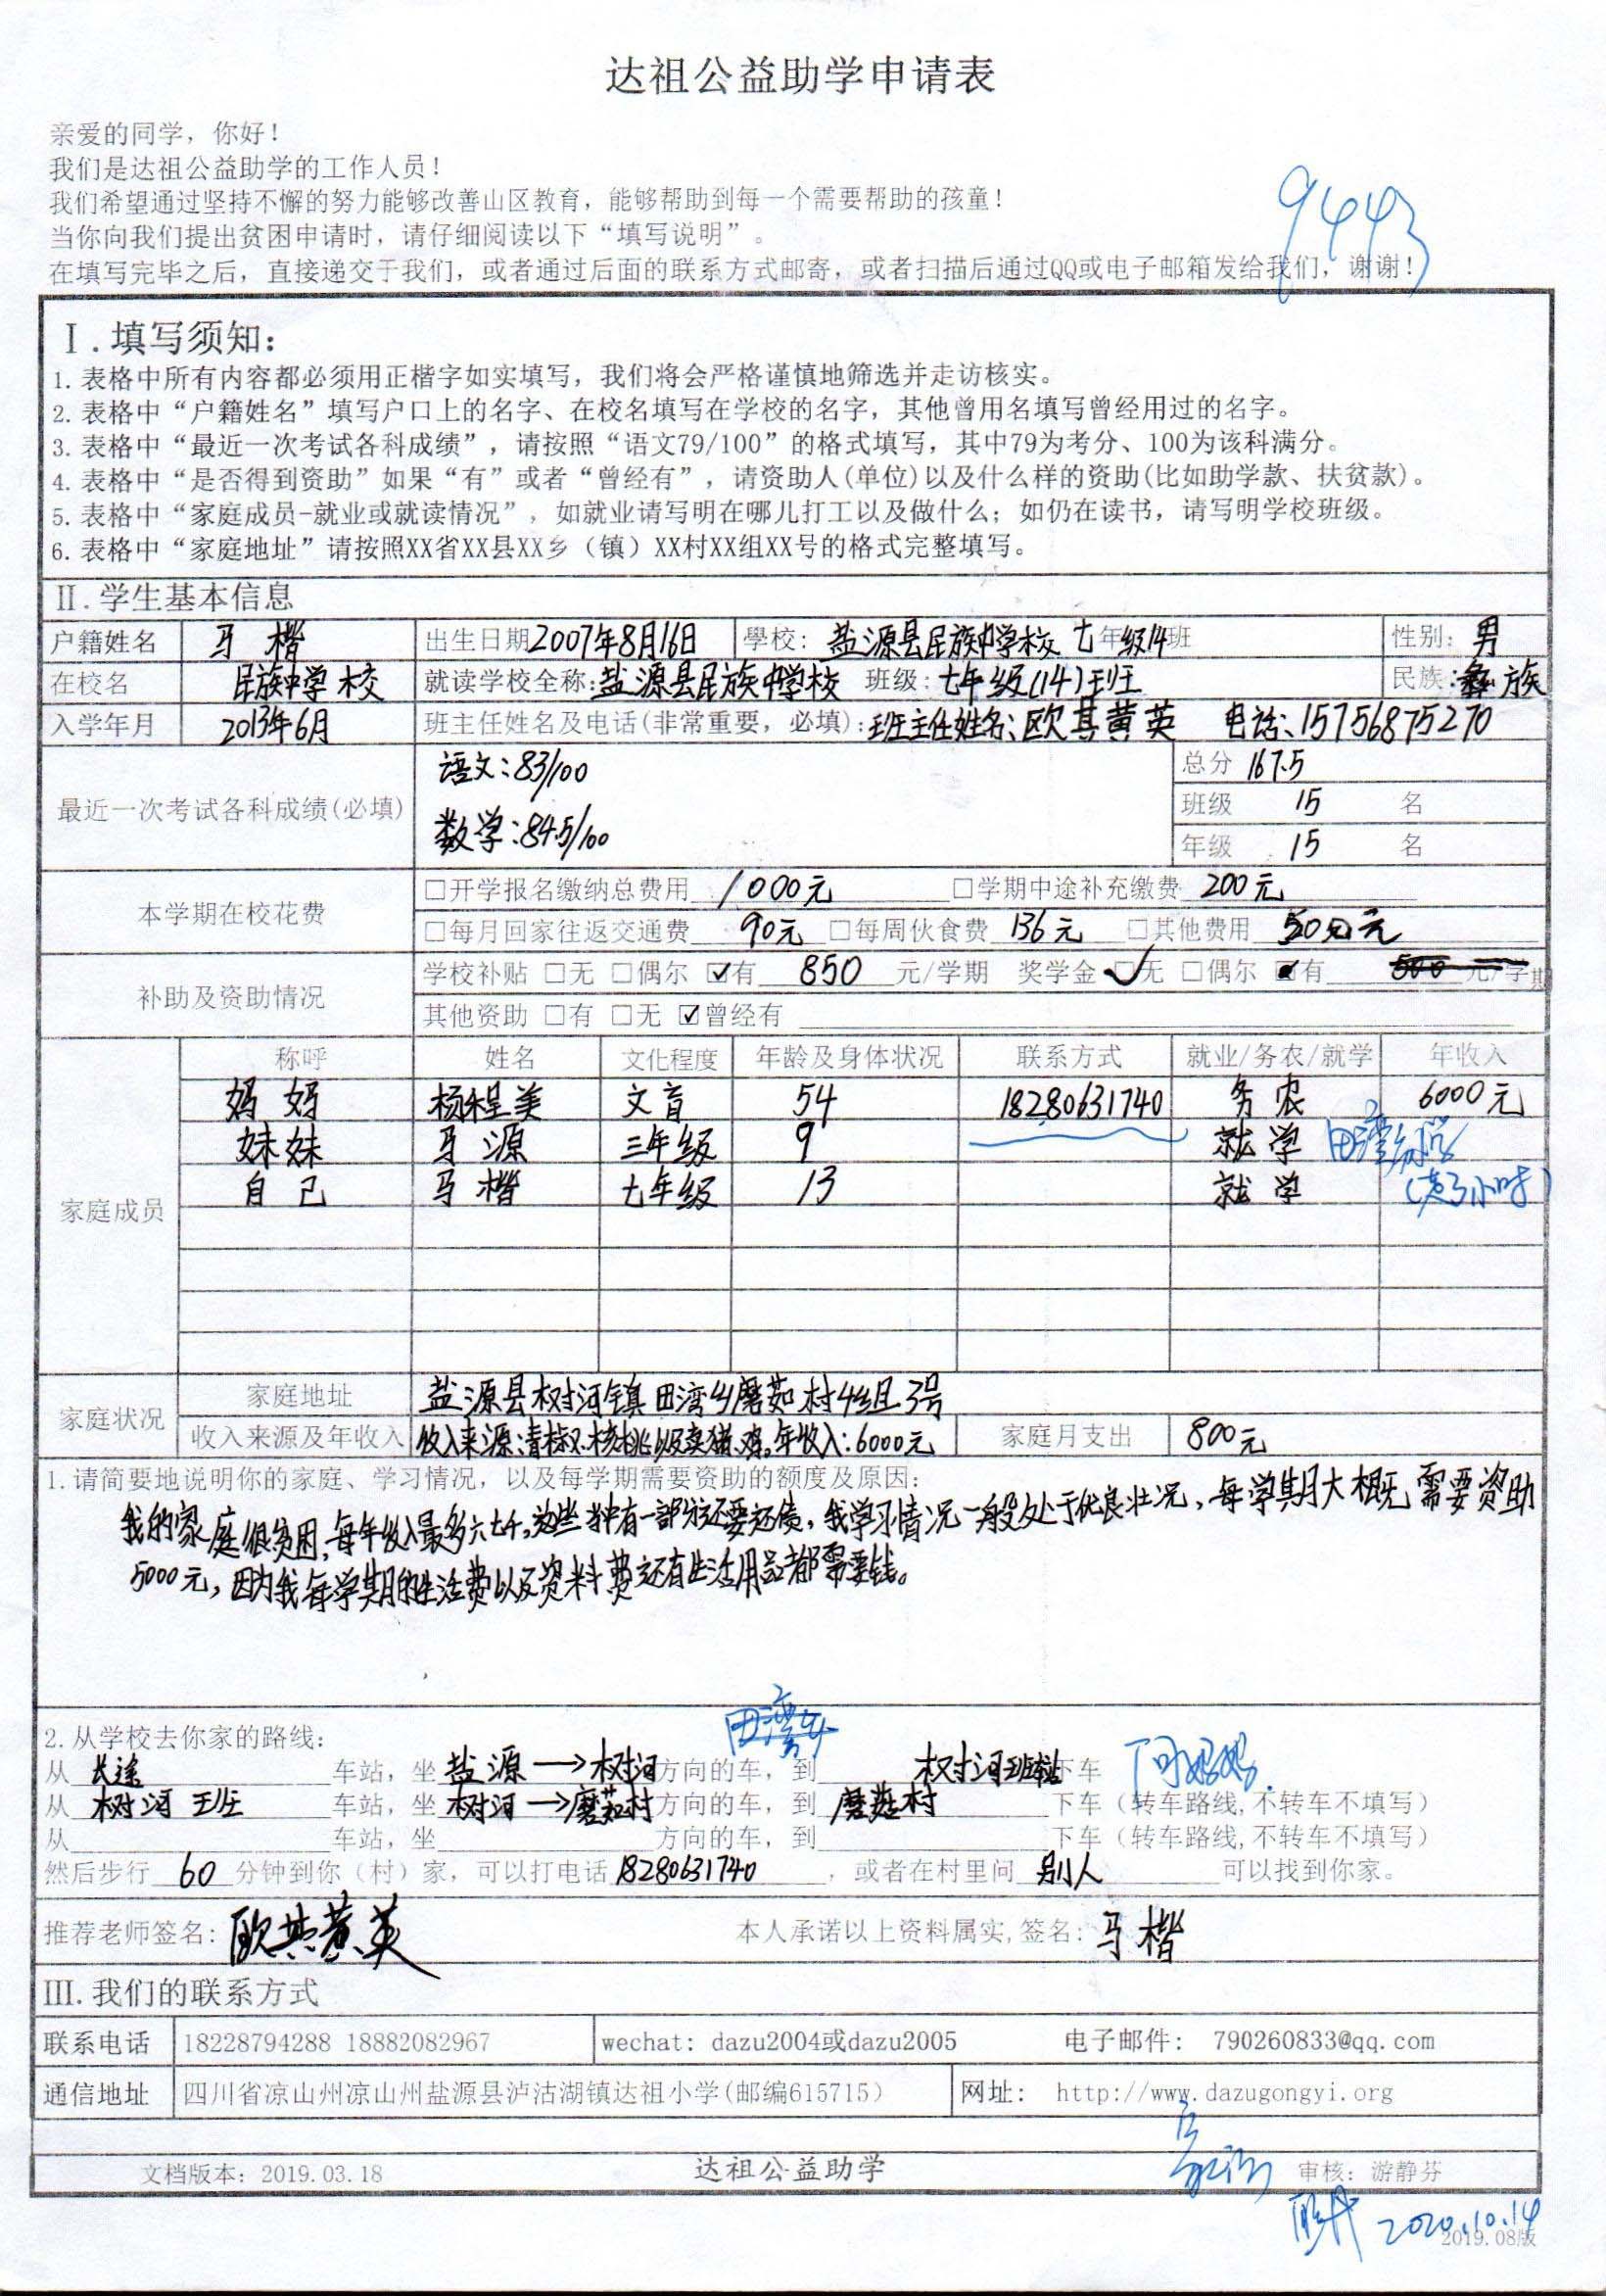 达祖公益助学申请表
亲爱的同学，你好！
我们是达祖公益助学的工作人员！
我们希望通过坚持不懈的努力能够改善山区教育，能够帮助到每一个需要帮助的孩童！
当你向我们提出贫困申请时，请仔细阅读以下“填写说明”。
在填写完毕之后，直接递交于我们，或者通过后面的联系方式邮寄，或者扫描后通过QQ或电子邮箱发给我们，谢谢！
9443
Ⅰ.填写须知：
1. 表格中所有内容都必须用正楷字如实填写，我们将会严格谨慎地筛选并走访核实。
2. 表格中“户籍姓名”填写户口上的名字、在校名填写在学校的名字，其他曾用名填写曾经用过的名字。
3. 表格中“最近一次考试各科成绩”，请按照“语文79/100”的格式填写，其中79为考分、100为该科满分。
4. 表格中“是否得到资助”如果“有”或者“曾经有”，请资助人(单位)以及什么样的资助(比如助学款、扶贫款)。
5. 表格中“家庭成员-就业或就读情况”，如就业请写明在哪儿打工以及做什么；如仍在读书，请写明学校班级。
6. 表格中“家庭地址”请按照XX省XX县XX乡（镇）XX村XX组XX号的格式完整填写。
Ⅱ.学生基本信息
户籍姓名 马楷 出生日期 2007年8月16日 學校: 盐源县民族中学校 七年级14班 性别: 男
在校名 民族中学校 就读学校全称: 盐源县民族中学校 班级: 七年级(14)班 民族: 彝族
入学年月 2013年6月 班主任姓名及电话(非常重要，必填): 班主任姓名:欧其黄英 电话:15756875270
最近一次考试各科成绩(必填) 语文:83/100 总分 167.5
班级 15 名
数学:84.5/100 年级 15 名
本学期在校花费 □开学报名缴纳总费用 1000元 □学期中途补充缴费 200元
□每月回家往返交通费 90元 □每周伙食费 136元 □其他费用 50元元
补助及资助情况 学校补贴 □无 □偶尔 ☑有 850 元/学期 奖学金 ☑无 □偶尔 ■有 500 元/学期
其他资助 □有 □无 ☑曾经有
家庭成员 称呼 姓名 文化程度 年龄及身体状况 联系方式 就业/务农/就学 年收入
妈妈 杨程美 文盲 54 18280631740 务农 6000元
妹妹 马源 三年级 9 就学 田湾乡小学
自己 马楷 七年级 13 就学 (走3小时)
家庭状况 家庭地址 盐源县树河镇田湾乡磨茹村4组3号
收入来源及年收入 收入来源:青椒、核桃以及卖猪、鸡。年收入:6000元 家庭月支出 800元
1.请简要地说明你的家庭、学习情况，以及每学期需要资助的额度及原因：
我的家庭很贫困，每年收入最多六七千，这些当中有一部分还要还债，我学习情况一般处于优良状况，每学期大概需要资助
5000元，因为我每学期的生活费以及资料费还有生活用品都需要钱。
2.从学校去你家的路线：
田湾乡
从 长途 车站，坐 盐源→树河 方向的车，到 树河班站 下车 问妈妈.
从 树河班 车站，坐 树河→磨茹村 方向的车，到 磨菇村 下车（转车路线,不转车不填写）
从 车站，坐 方向的车，到 下车（转车路线,不转车不填写）
然后步行 60 分钟到你（村）家，可以打电话 18280631740，或者在村里问 别人 可以找到你家。
推荐老师签名: 欧其黄英 本人承诺以上资料属实,签名: 马楷
III.我们的联系方式
联系电话 18228794288 18882082967 wechat: dazu2004或dazu2005 电子邮件: 790260833@qq.com
通信地址 四川省凉山州凉山州盐源县泸沽湖镇达祖小学(邮编615715) 网址: http://www.dazugongyi.org
文档版本: 2019.03.18 达祖公益助学 审核: 游静芬
2020.10.14
2019.08版